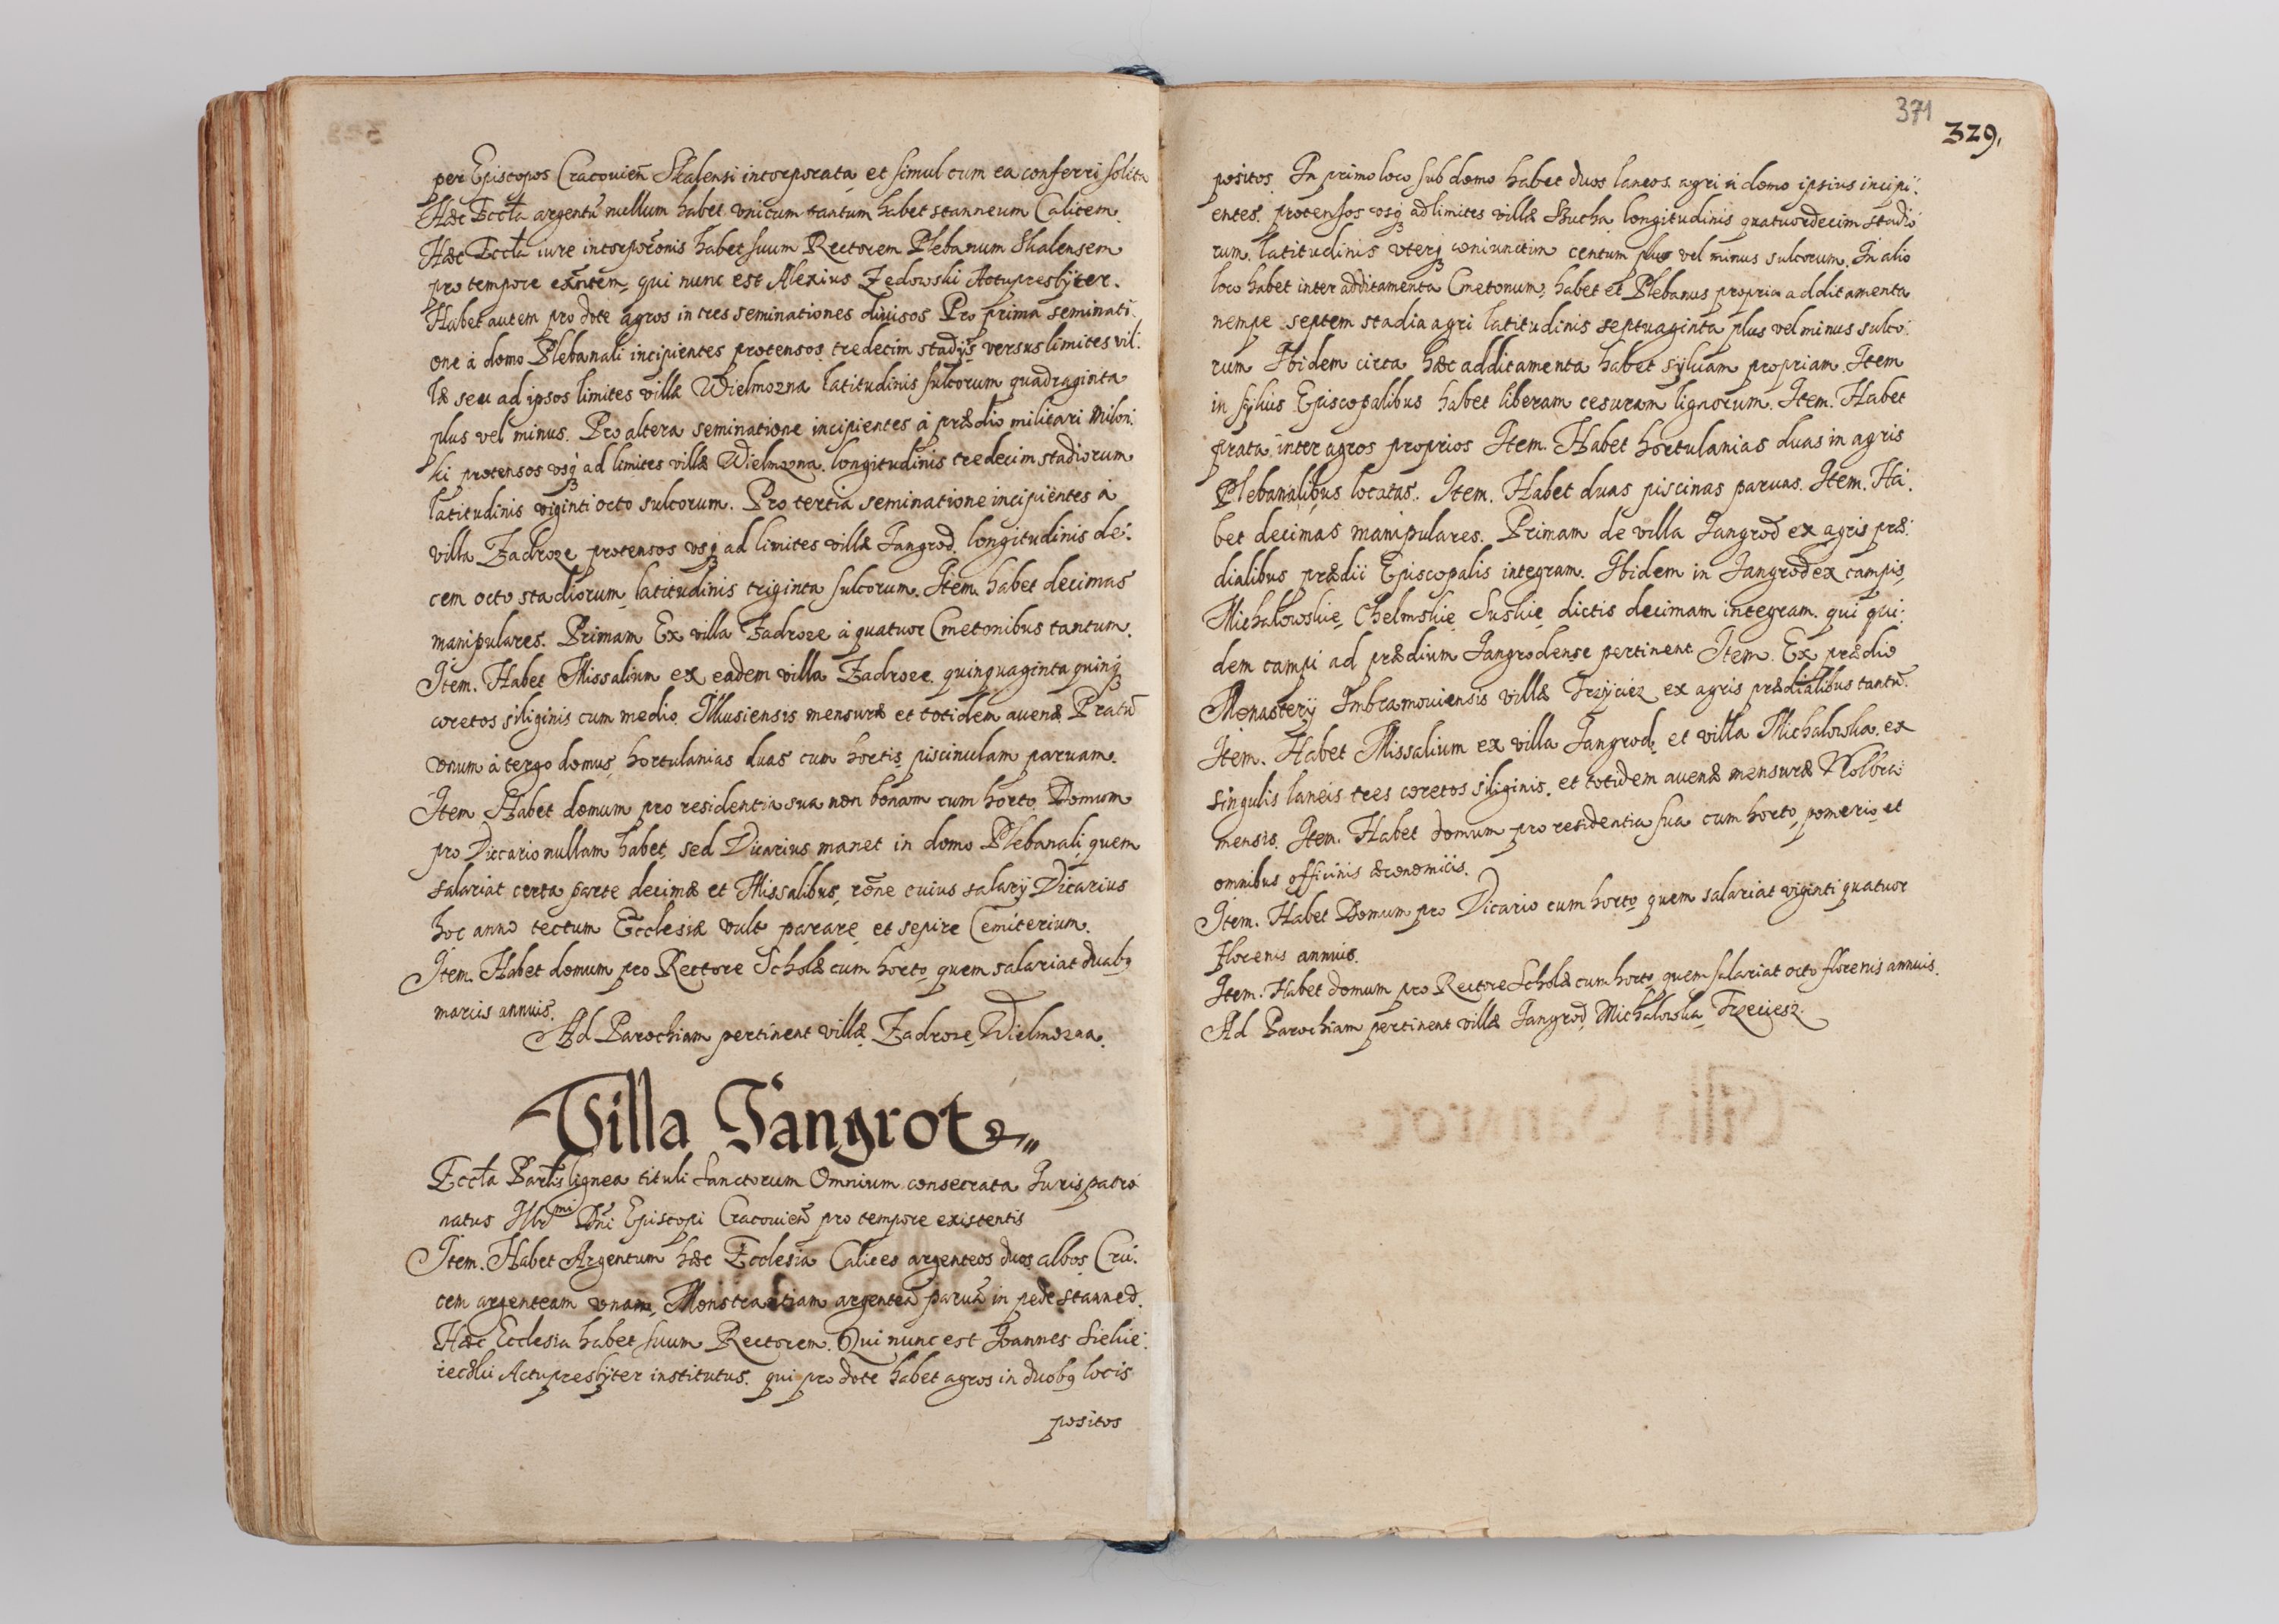 per Episcopos Cracovień Skalensi incorporata, et simul cum ea conferri solita
Hæc Eccła argentū nullum habet unicum tantum habet stanneum Calicem.
Hæc Eccła iure incorporōnis habet suum Rectorem Plebanum Skalensem
pro tempore exñtem, qui nunc est Alexius Zedowski Actupresbÿter.
Habet autem pro dote agros in tres seminationes divisos Pro prima seminati-
one à domo Plebanali incipientes protensos tredecim stadijs versus limites vil-
læ seu ad ipsos limites villæ Wielmozna latitudinis sulcorum quadraginta
plus vel minus. Pro altera seminatione incipientes à prædio militari Miłon-
ki protensos usq ad limites villæ Wielmozna. longitudinis tredecim stadiorum
latitudinis viginti octo sulcorum. Pro tertia seminatione incipientes à
villa Zadroze protensos usq ad limites villæ Jangrod. longitudinis de-
cem octo stadiorum, latitudinis triginta sulcorum. Item habet decimas
manipulares. Primam Ex villa Zadroze à quatuor Cmetonibus tantum.
Item. Habet Missalium ex eadem villa Zadroze. quinquaginta quinq
coretos siliginis cum medio. Illkusiensis mensuræ et totidem avenæ. Pratū
unum à tergo domus, hortulanias duas cum hortis, piscinulam parvam.
Item Habet domum pro residentia sua non bonam cum horto. Domum
pro Viccario nullam habet, sed Vicarius manet in domo Plebanali, quem
salariat certa parte decimæ et Missalibus, rōne cuius salarij Vicarius
hoc anno tectum Ecclesiæ vult parare, et sepire Cemiterium.
Item. Habet domum pro Rectore Scholæ cum horto quem salariat duab9
marcis annuis.
Ad Parochiam pertinent villæ, Zadroze, Wielmozna.
Villa Jangrot
Eccła Parłis lignea tituli Sanctorum Omnium consecrata Juris patro
natus Illrmi Dñi Episcopi Cracovień pro tempore existentis
Item. Habet Argentum hæc Ecclesia Calices argenteos duos albos, Cru-
cem argenteam unam, Monstrantiam argenteā parvā in pede stanneo.
Hæc Ecclesia habet suum Rectorem. Qui nunc est Joannes
Actupresbÿter institutus. qui pro dote habet agros in duob9 locis
positos
371
329.
positos. In primo loco sub domo habet duos laneos agri à domo ipsius incipi-
entes, protensos usq ad limites villæ Sucha, longitudinis quatuordecim stadio
rum. latitudinis uterq coniunctim centum plus vel minus sulcorum. In alio
loco habet inter additamenta Cmetonum, habet et Plebanus propria additamenta
nempe septem stadia agri latitudinis septuaginta plus vel minus sulco-
rum Ibidem circa hæc additamenta habet sylvam propriam. Item
in sylvis Episcopalibus habet liberam cesuram lignorum. Item. Habet
prata inter agros proprios Item. Habet hortulanias duas in agris
Plebanalibus locatas. Item. Habet duas piscinas parvas. Item. Ha-
bet decimas manipulares. Primam de villa Jangrod ex agris præ-
dialibus prædii Episcopalis integram. Ibidem in Jangrod ex campis,
Michałowskie, Chelmskie, Suskie, dictis decimam integram. qui qui-
dem campi ad prædium Jangrodense pertinent Item. Ex prædio
Monasterÿ Imbramoviensis villæ Trzyciez ex agris prædialibus tantū.
Item. Habet Missalium ex villa Jangrod, et villa Michałowka. ex
singulis laneis tres coretos siliginis, et totidem avenæ mensuræ Wolbro
mensis. Item. Habet domum pro residentia sua cum horto, pomerio, et
omnibus officinis œconomicis.
Item. Habet Domum pro Vicario cum horto quem salariat viginti quatuor
Florenis annuis.
Item. Habet domum pro Rectore Scholæ cum horto, quem salariat octo florenis annuis.
Ad Parochiam pertinent villæ Jangrod, Michałowka, Trzeciesz.